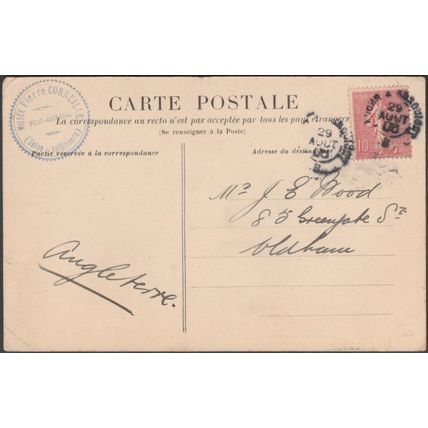 CARTE POSTALE
La correspondance au recto n'est pas acceptée par tous les pays étrangers
(Se renseigner à la Poste)
Partie réservée à la correspondance
Adresse du destinataire
MUSÉE Pierre CORNEILLE
PETIT-COURONNE
(Seine-Inférieure)
29
AOUT
05
29
AOUT
05
10
Mr J E Wood
85 Greengate St
Oldham
Angleterre.